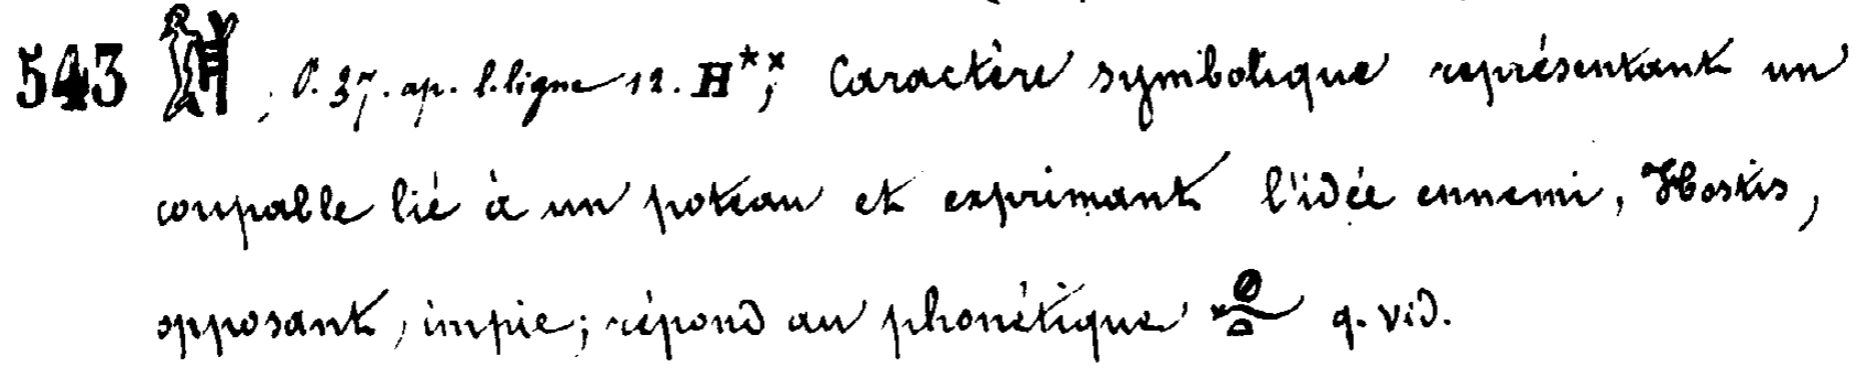 543 𓀐, P. 37. ap. l. ligne 12. H**; Caractère symbolique représentant un
coupable lié à un poteau et exprimant l'idée ennemi, Hostis,
opposant, impie; répond au phonétique q. vid.